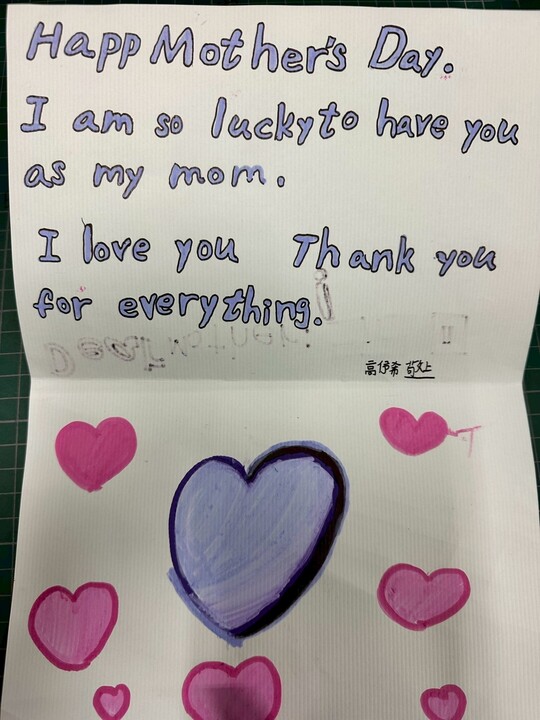 Happ Mother's Day.
I am so lucky to have you
as my mom.
I love you Thank you
for everything.
Dear Mother.
敬上